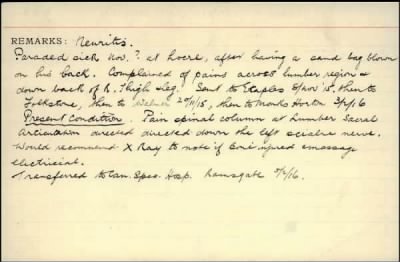 REMARKS: Neuritis.
Paraded sick Nov. ? at Locre, after having a sand bag blown
on his back. Complained of pains across lumber region &
down back of R. Thigh & leg. Sent to Etaples 5/Nov '15, then to
Folkstone, then to Walmer 27/11/15, then to Monks Horton 3/2/16
Present Condition. Pain spinal column at Lumber Sacral
Articulation directed directed down the left sciatic nerve.
Would recommend X Ray to note if bone injured & massage
electricial.
Transferred to Can. Spec. Hosp. Ramsgate /16.